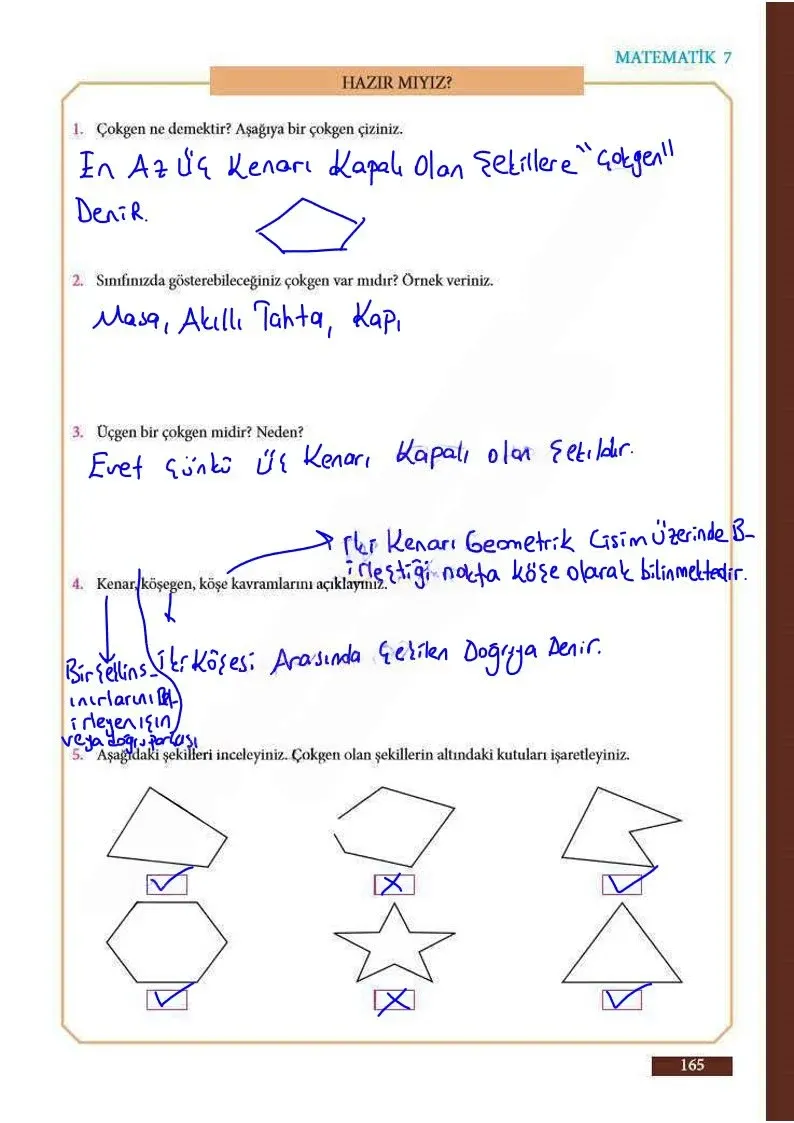 MATEMATİK 7
HAZIR MIYIZ?
1. Çokgen ne demektir? Aşağıya bir çokgen çiziniz.
En Az Üç Kenarı Kapalı Olan Şekillere "Çokgen"
Denir.
2. Sınıfınızda gösterebileceğiniz çokgen var mıdır? Örnek veriniz.
Masa, Akıllı Tahta, Kapı
3. Üçgen bir çokgen midir? Neden?
Evet Çünkü Üç Kenarı Kapalı olan Şekildir.
İki Kenarı Geometrik Cisim Üzerinde B-
irleştiği nokta köşe olarak bilinmektedir.
4. Kenar, köşegen, köşe kavramlarını açıklayınız.
İki Köşesi Arasında Çekilen Doğruya Denir.
Bir Şeklin s-
ınırlarını Bel-
irleyen ışın
veya doğru parçası
5. Aşağıdaki şekilleri inceleyiniz. Çokgen olan şekillerin altındaki kutuları işaretleyiniz.
165